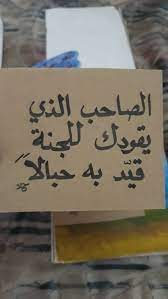 الصاحب الذي
يقودك للجنة
قيّد به حبالاً